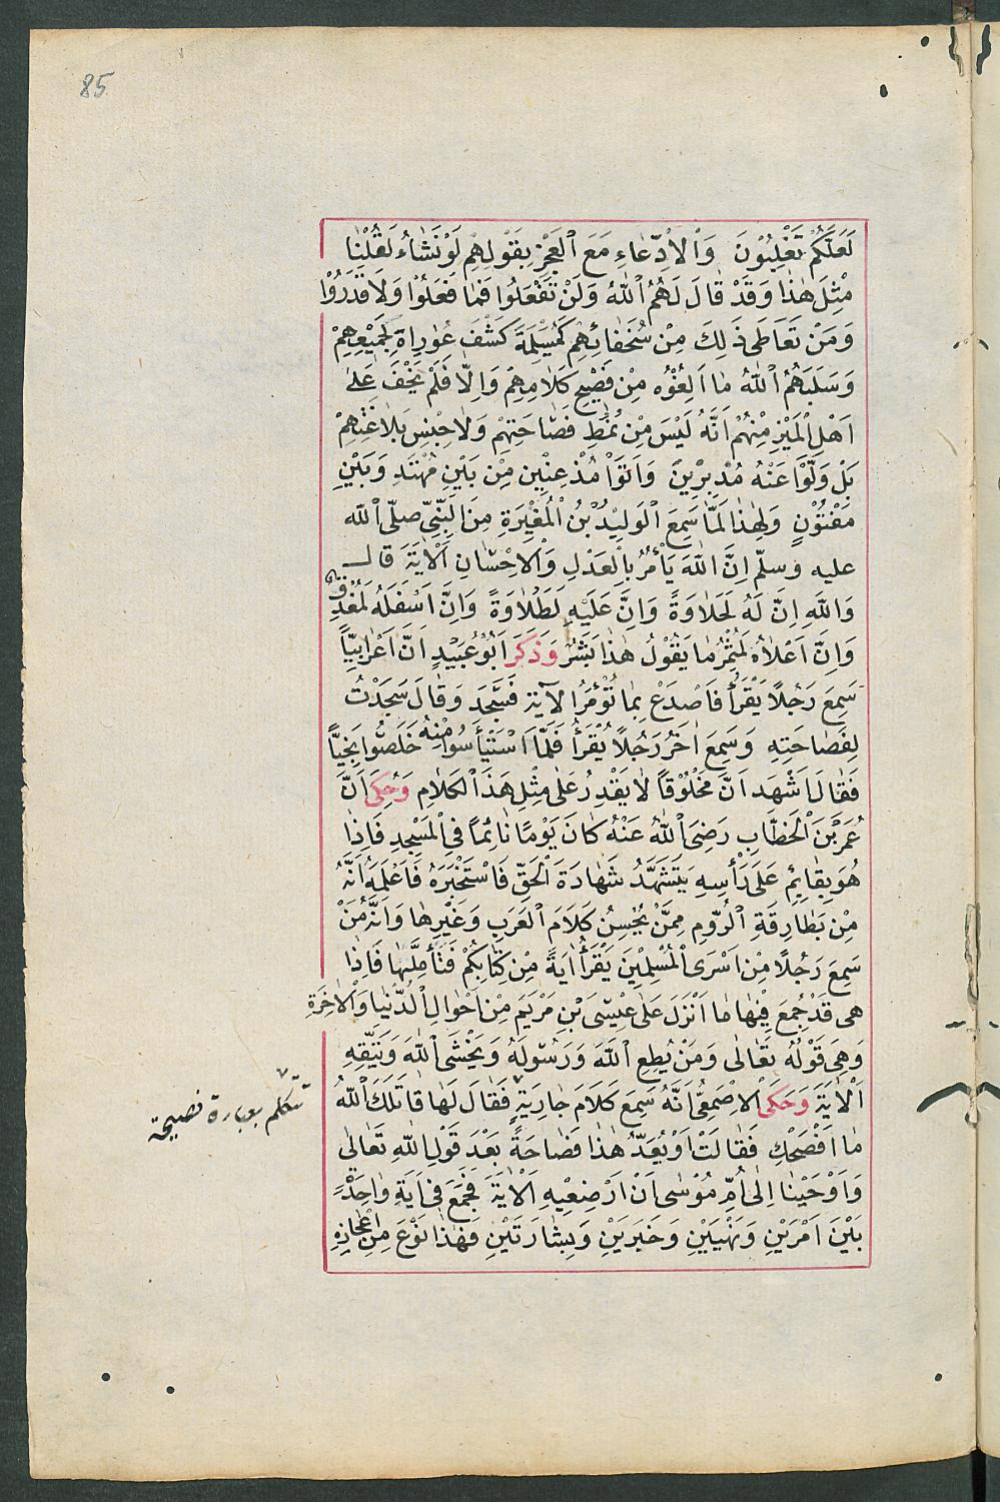 85
لَعَلَّكُمْ تَغْلِبُوْنَ وَالْاِدِّعَاءِ مَعَ الْعَجْزِ بِقَوْلِهِمْ لَوْ نَشَاءُ لَقُلْنَا
مِثْلَ هٰذَا وَقَدْ قَالَ لَهُمُ اللّٰهُ وَلَنْ تَفْعَلُوا فَمَا فَعَلُوْا وَلَا قَدَرُوْا
وَمَنْ تَعَاطَى ذٰلِكَ مِنْ سُخَفَائِهِمْ كَمُسَيْلِمَةَ كَشَفَ عُوَارِهٖ لِجَمِيْعِهِمْ
وَسَلَبَهُمُ اللّٰهُ مَا اَلِفُوْهُ مِنْ فَصِيْحِ كَلَامِهِمْ وَاِلَّا فَلَمْ يَخْفَ عَلٰى
اَهْلِ الْمَيْزِ مِنْهُمْ اَنَّهُ لَيْسَ مِنْ نَمَطِ فَصَاحَتِهِمْ وَلَا جِنْسِ بَلَاغَتِهِمْ
بَلْ وَلَّوْا عَنْهُ مُدْبِرِيْنَ وَاَتَوْا مُذْعِنِيْن مِنْ بَيْنِ مُهْتَدٍ وَبَيْنِ
مَفْتُوْنٍ وَلِهٰذَا لَمَّا سَمِعَ الْوَلِيْدُ بْنُ الْمُغِيْرَةِ مِنَ النَّبِيِّ صلّى اللّه
عليه وسلّم اِنَّ اللّٰهَ يَأْمُرُ بِالْعَدْلِ وَالْاِحْسَانِ اَلْاٰيَةَ قال
وَاللّٰهِ اِنَّ لَهُ لَحَلَاوَةً وَاِنَّ عَلَيْهِ لَطَلَاوَةً وَاِنَّ اَسْفَلَهُ لَمُغْدِقٌ
وَاِنَّ اَعْلَاهُ لَمُثْمِرٌ مَا يَقُوْلُ هٰذَا بَشَرٌ وَذَكَرَ اَبُوْ عُبَيْدٍ اَنَّ اَعْرَابِيًّا
سَمِعَ رَجُلًا يَقْرَأُ فَاصْدَعْ بِمَا تُؤْمَرُ الآية فَسَجَدَ وَقَالَ سَجَدْتُ
لِفَصَاحَتِهِ وَسَمِعَ اٰخَرُ رَجُلًا يُقْرَأُ فَلَمَّا اسْتَيْأَسُوا مِنْهُ خَلَصُوا نَجِيًّا
فَقَالَ اَشْهَد اَنَّ مَخْلُوْقًا لَا يَقْدِرُ عَلٰى مِثْلِ هَذَا الْكَلَامِ وَحُكِيَ اَنَّ
عُمَرَ بْنَ الْخَطَّابِ رَضِيَ اللّٰهُ عَنْهُ كَانَ يَوْمًا نَائِمًا فِي الْمَسْجِدِ فَاِذَا
هُوَ بِقَائِمٍ عَلٰى رَأْسِهِ يَتَشَهَّدُ شَهَادَةَ الْحَقِّ فَاسْتَخْبَرَهُ فَاَعْلَمَهُ اَنَّهُ
مِنْ بَطَارِقَةِ الرُّوْمِ مِمَّنْ يُحْسِنُ كَلَامَ الْعَرَبِ وَغَيْرِهَا وَاَنَّهُ مَنْ
سَمِعَ رَجُلًا مِنْ اَسْرَى الْمُسْلِمِيْنَ يَقْرَأُ اٰيَةً مِنْ كِتَابِكُمْ فَتَأَمَّلْتُهَا فَاِذَا
هى قَدْ جُمِعَ فِيْهَا مَا اَنْزَلَ عَلٰى عِيْسَى بْنِ مَرْيَمَ مِنْ اَحْوَالِ الدُّنْيَا وَالْاٰخِرَةِ
وَهِيَ قَوْلُهُ تَعَالٰى وَمَنْ يُطِعِ اللّٰهَ وَرَسُوْلَهُ وَيَخْشَى اللّٰهَ وَيَتَّقِهِ
اَلْاٰيَةَ وَحَكَى الْاَصْمَعِيُّ اَنَّهُ سَمِعَ كَلَامَ جَارِيَةٍ فَقَالَ لَهَا قَاتَلَكَ اللّٰهُ
مَا اَفْصَحَكِ فَقَالَتْ اَوَيُعَدُّ هٰذَا فَصَاحَةً بَعْدَ قَوْلِ اللّٰهِ تَعَالٰى
وَاَوْحَيْنَا اِلٰى اُمِّ مُوْسٰى اَنْ اَرْضِعِيْهِ اَلْاٰيَةَ فَجَمَعَ فِى اٰيَةٍ وَاحِدَةٍ
بَيْنَ اَمْرَيْنِ وَنَهْيَيْنِ وَخَبَرَيْنِ وَبِشَارَتَيْنِ فَهٰذَا نَوْعٌ مِنْ اِعْجَازِهِ
تتكلم بعبارة فصيحة